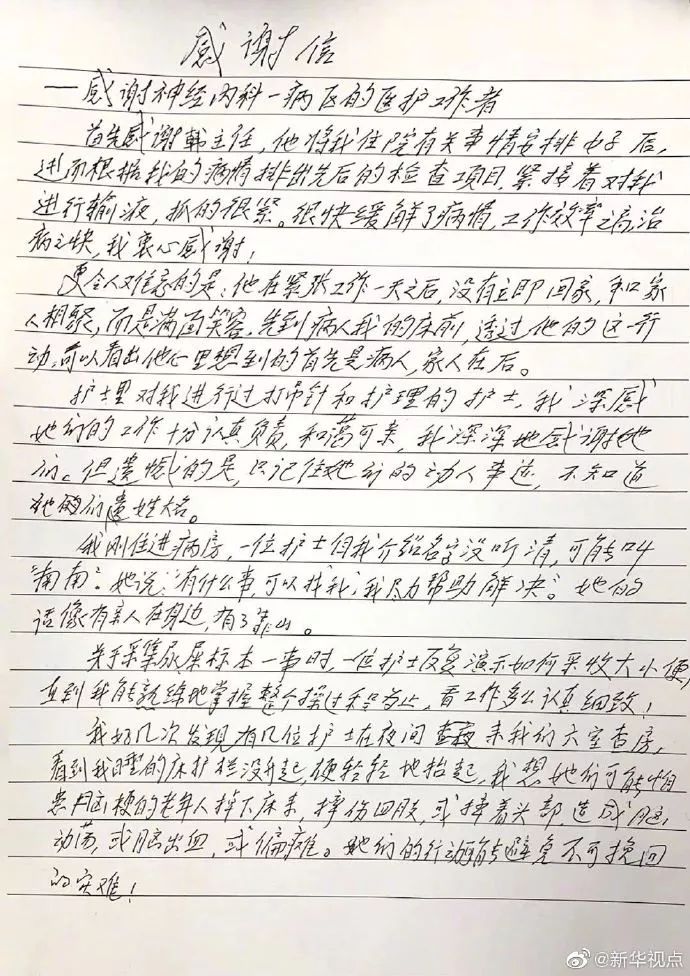 感谢信
——感谢神经内科一病区的医护工作者
首先感谢韩主任，他将我住院有关事情安排好后，
进而根据我的病情排出先后的检查项目，紧接着对我
进行输液，抓的很紧。很快缓解了病情，工作效率之高，治
病之快，我衷心感谢！
更令人难忘的是：他在紧张工作一天之后，没有立即回家，和家
人相聚，而是满面笑容，先到病人我的床前，透过他的这一行
动，可以看出他心里想到的首先是病人，家人在后。
护士里对我进行过打吊针和护理的护士，我深感
她们的工作十分认真负责，和蔼可亲，我深深地感谢她
们。但遗憾的是，只记住她们的动人事迹，不知道
她们姓名。
我刚住进病房，一位护士但我介绍名字没听清，可能叫
“南南”。她说：“有什么事，可以找我，我尽力帮助解决”。她的
话像有亲人在身边，有了靠山。
关于采集尿屎标本一事时，一位护士反复演示如何采收大小便，
直到我能熟练地掌握整个操过程为止，看工作多么认真细致！
我好几次发现有几位护士在夜间来我们六室查房，
看到我睡的床护栏没升起，便轻轻地抬起，我想她们可能怕
患脑梗的老年人掉下床来，摔伤四肢，或撞着头部，造成脑
动荡，或脑出血，或偏瘫。她们的行动能避免不可挽回
的灾难！
@新华视点